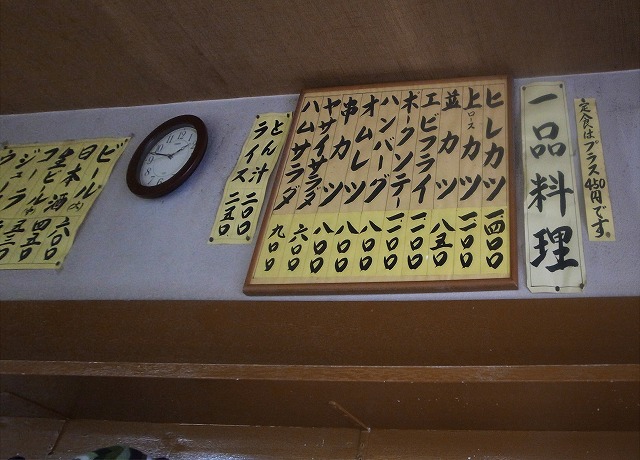 定食はプラス450円です。
一品料理
ヒレカツ 一四〇〇
上ロースカツ 一二〇〇
並カツ 八五〇
エビフライ 一二〇〇
ポークソテー 一二〇〇
ハンバーグ 八〇〇
オムレツ 八〇〇
串カツ 八〇〇
ヤサイサラダ 六〇〇
ハムサラダ 九〇〇
とん汁 二〇〇
ライス 二五〇
ビール(大) 六〇〇
日本酒 四五〇